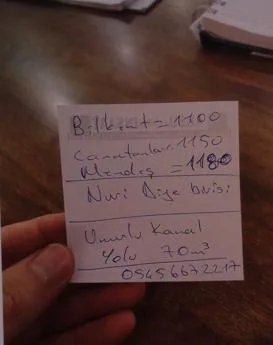 Bilkent = 1100
Canatanlar. 1150
Mendeş = 1180
Nuri Diye birisi
Umurlu Kanal
Yolu 70m³
05456672217